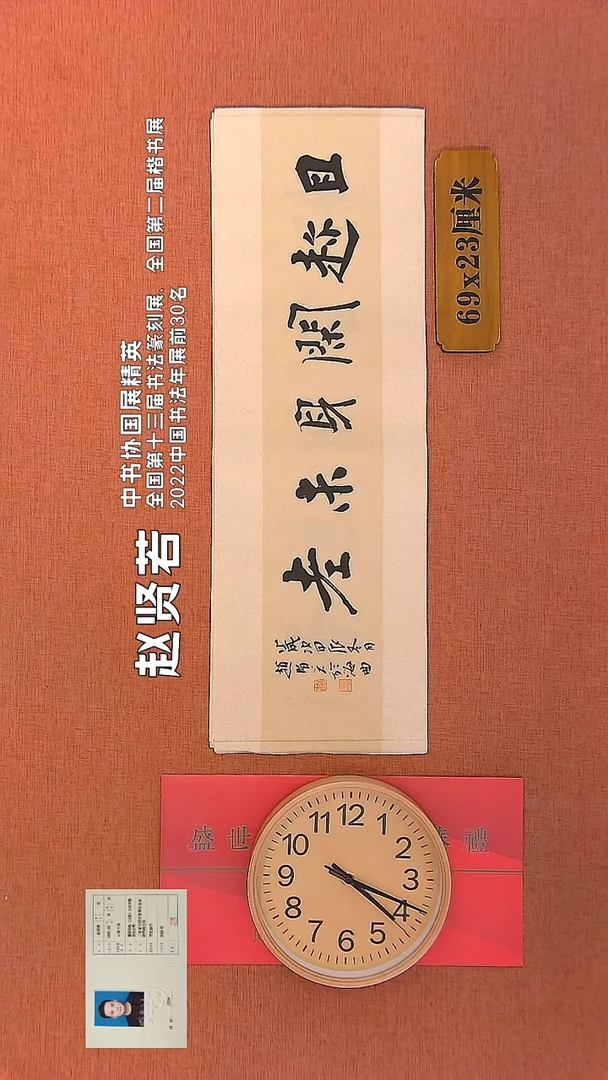 赵贤若
中书协国展精英
全国第十三届书法篆刻展、全国第二届楷书展
2022中国书法年展前30名
且趁閑身未老
趙賢若於海曲
69x23厘米
盛世
禮
12
1
2
3
4
5
6
7
8
9
10
11